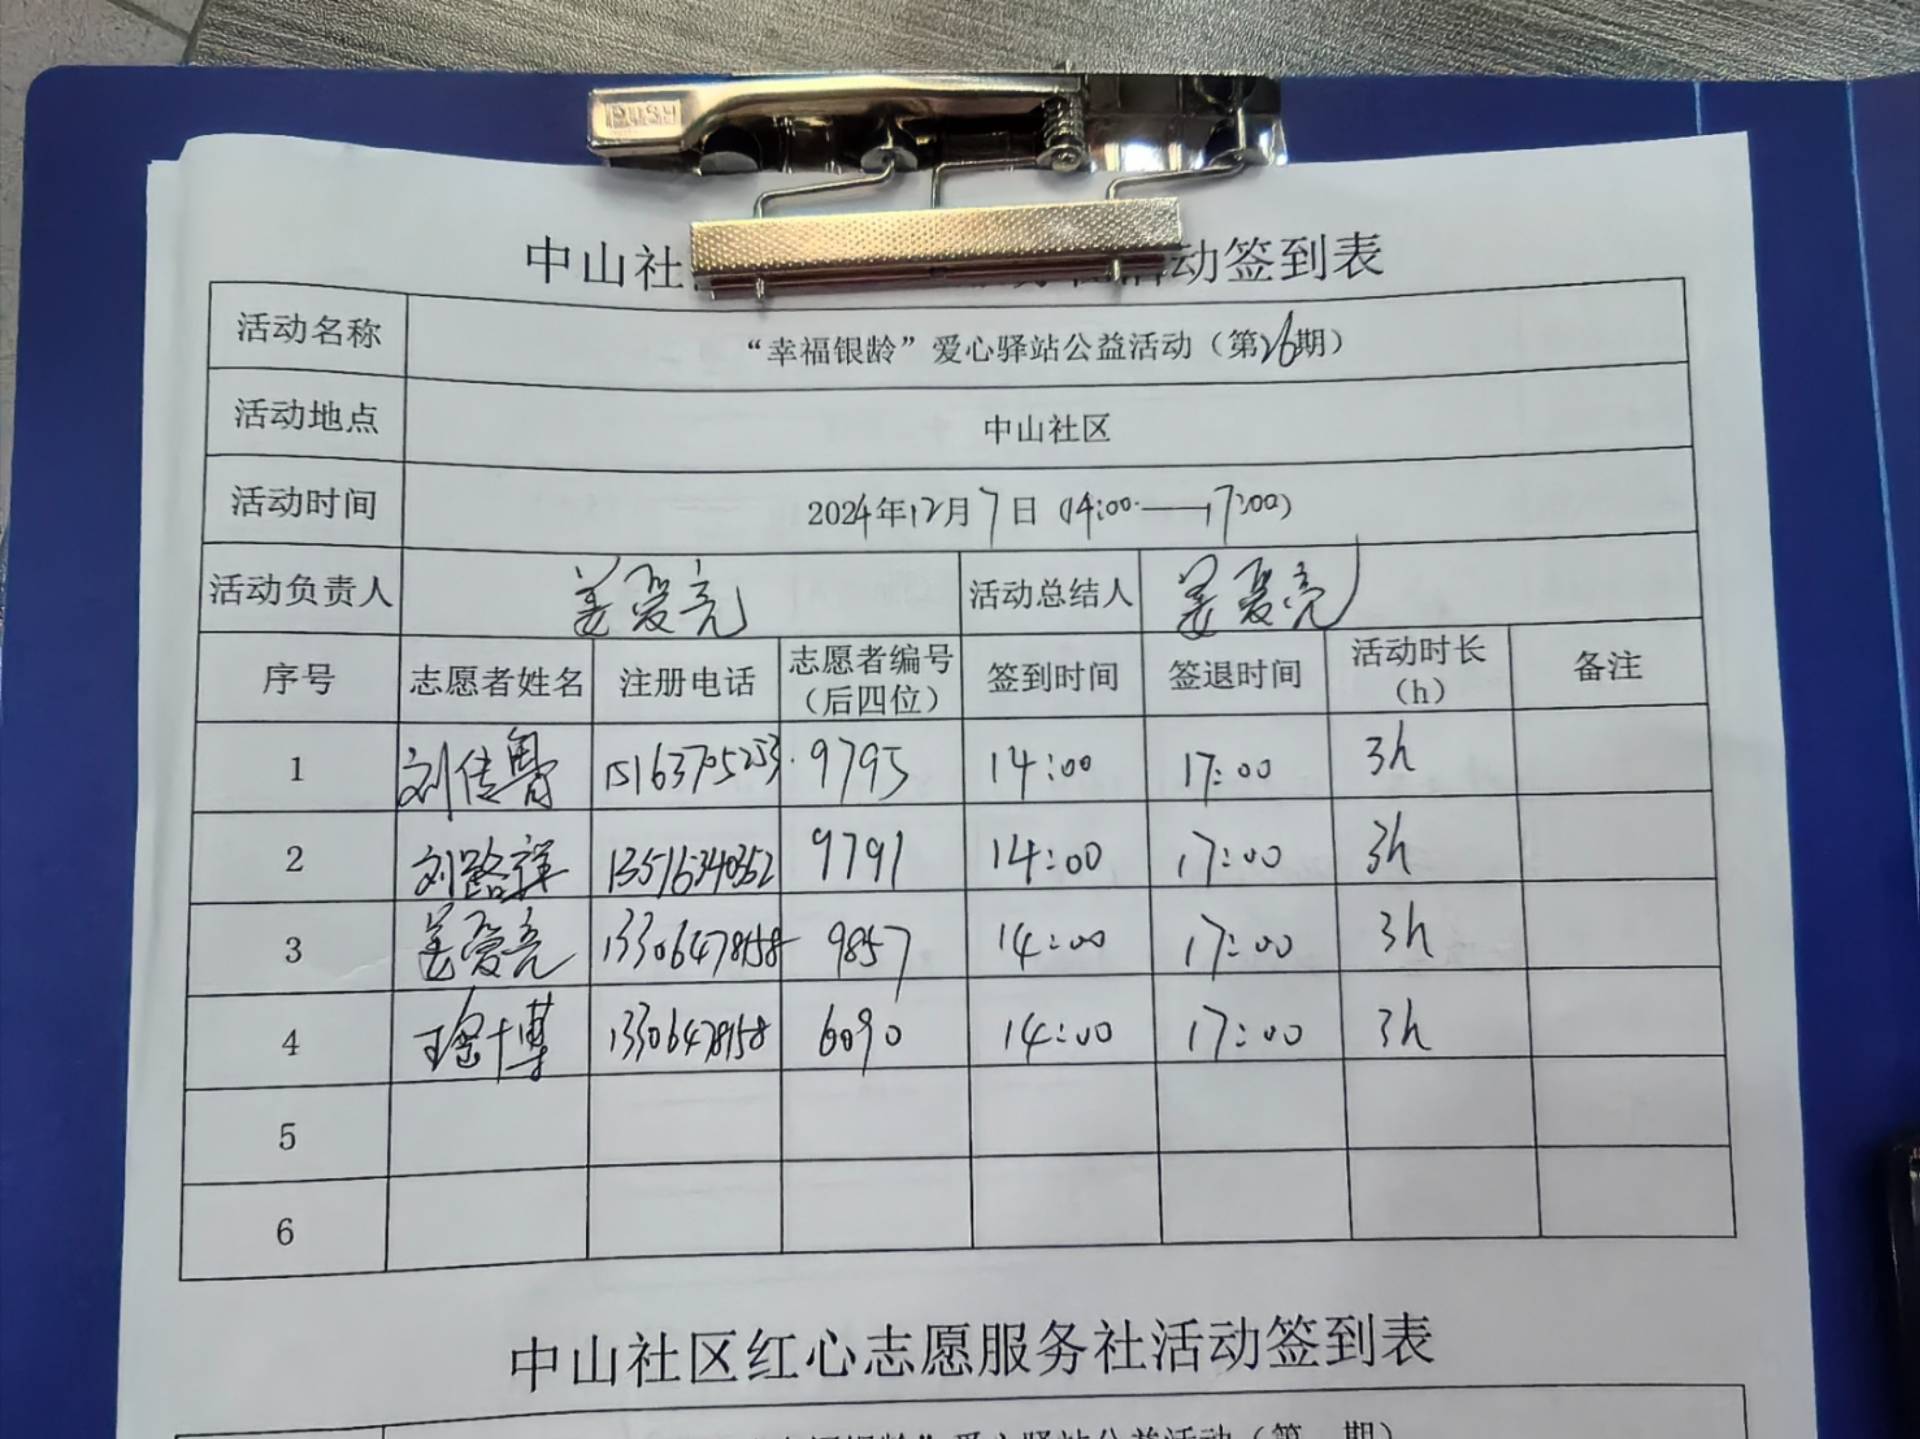 PUSH
中山社 活动签到表
活动名称 “幸福银龄”爱心驿站公益活动（第26期）
活动地点 中山社区
活动时间 2024年12月7日（14:00——17:00）
活动负责人 姜爱亮 活动总结人 姜爱亮
序号 志愿者姓名 注册电话 志愿者编号（后四位） 签到时间 签退时间 活动时长（h） 备注
1 刘传 15163705253 9795 14:00 17:00 3h
2 刘路祥 13516340352 9791 14:00 17:00 3h
3 姜爱亮 13306478158 9857 14:00 17:00 3h
4 博 13306478158 6090 14:00 17:00 3h
5
6
中山社区红心志愿服务社活动签到表
“幸福银龄”爱心驿站公益活动（第 期）